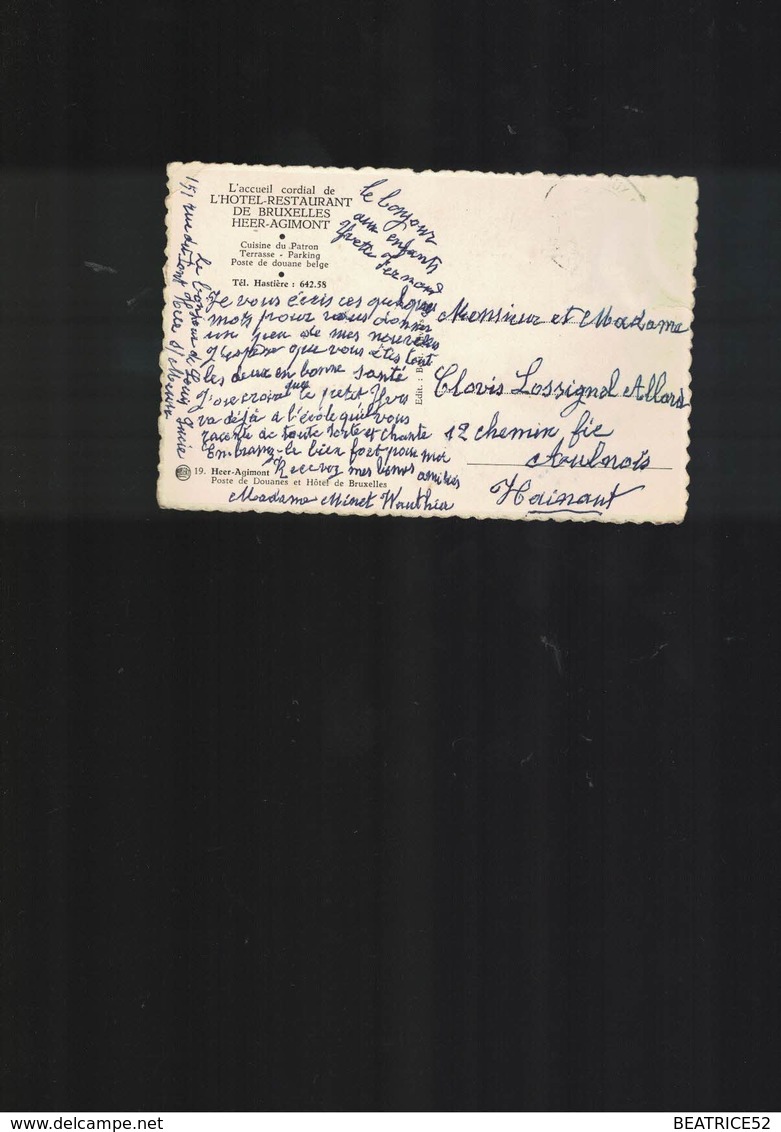 L'accueil cordial de
L'HOTEL-RESTAURANT
DE BRUXELLES
HEER-AGIMONT
Cuisine du Patron
Terrasse - Parking
Poste de douane belge
Tél. Hastière : 642.58
le bonjour
aux enfants
Yvette Fernand
Je vous écris ces quelques
mots pour vous donner
un peu de mes nouvelles
J'espère que vous êtes tout
les deux en bonne santé
J'ose croire que le petit Yves
va déjà à l'école qu'il vous
raconte de toute sorte et chante
Embrassez-le bien fort pour moi
Recevez mes bonnes amitiés
Madame Minet Wauthier
le bonjour de Louis
151 rue du
19. Heer-Agimont
Poste de Douanes et Hôtel de Bruxelles
Edit. :
Monsieur et Madame
Clovis Lossignol Allard
12 chemin fic
Aulnois
Hainaut
delcampe.net
BEATRICE52